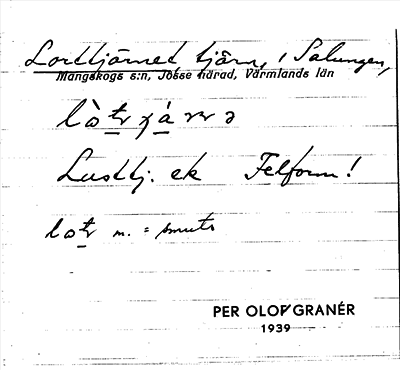 Lorttjärnet tjärn, i Salungen,
Mangskogs s:n, Jösse härad, Värmlands län
Lusttj. ek Felform!
lo̲r̲t m. = smuts
PER OLOF GRANÉR
1939